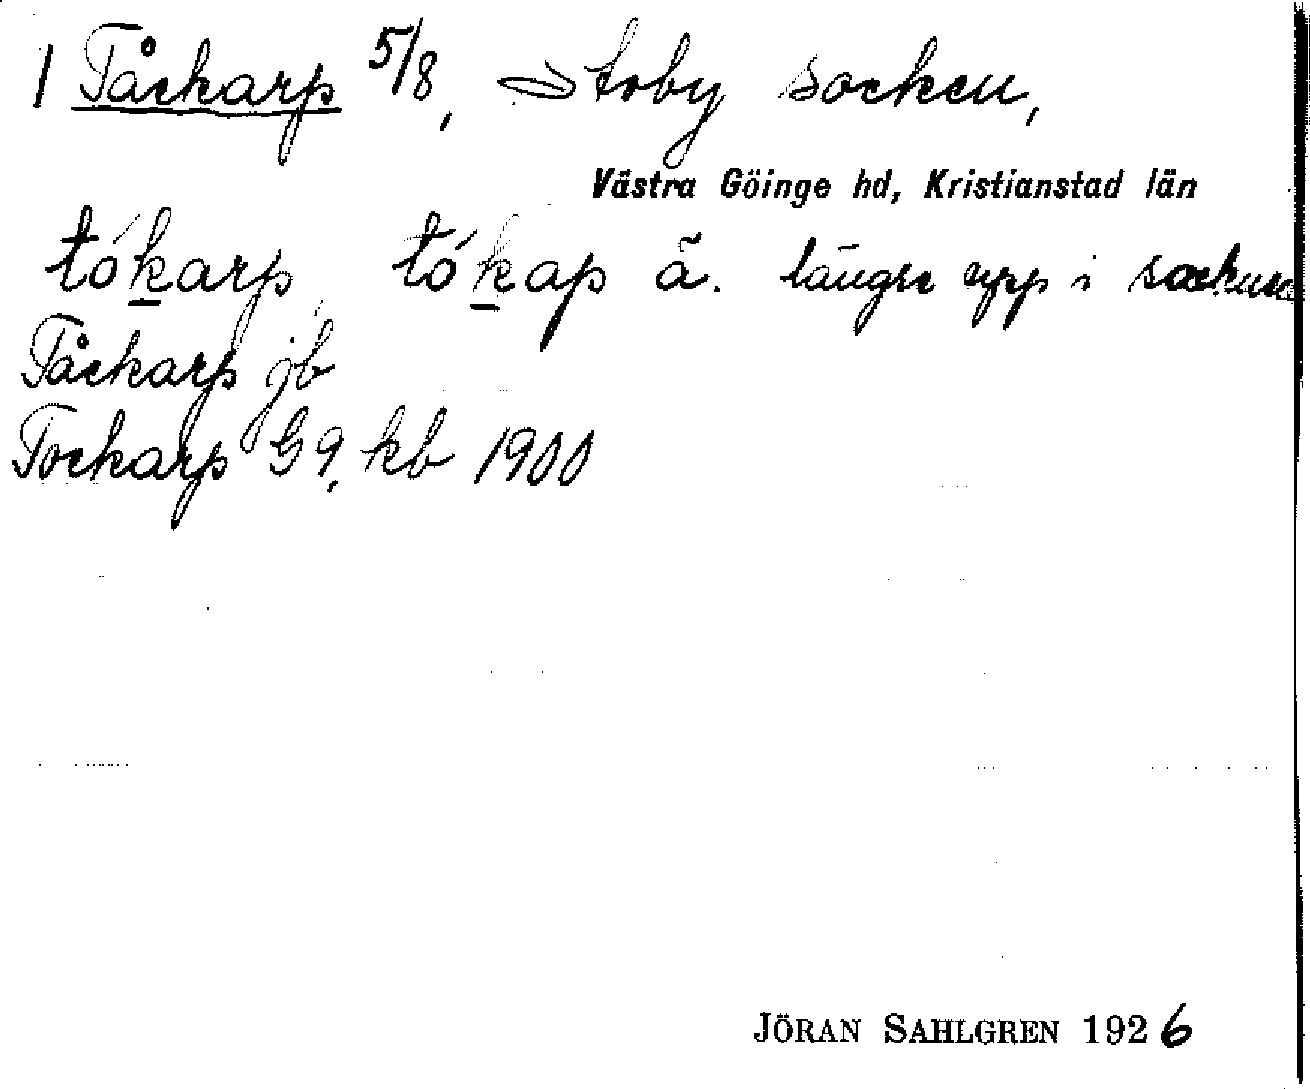 1 Tåckarp 5/8, Stoby socken,
Västra Göinge hd, Kristianstad län
tókarp, tókap ä. längre upp i socknen
Tåckarp jb
Tockarp G 9, kb 1900
JÖRAN SAHLGREN 1926